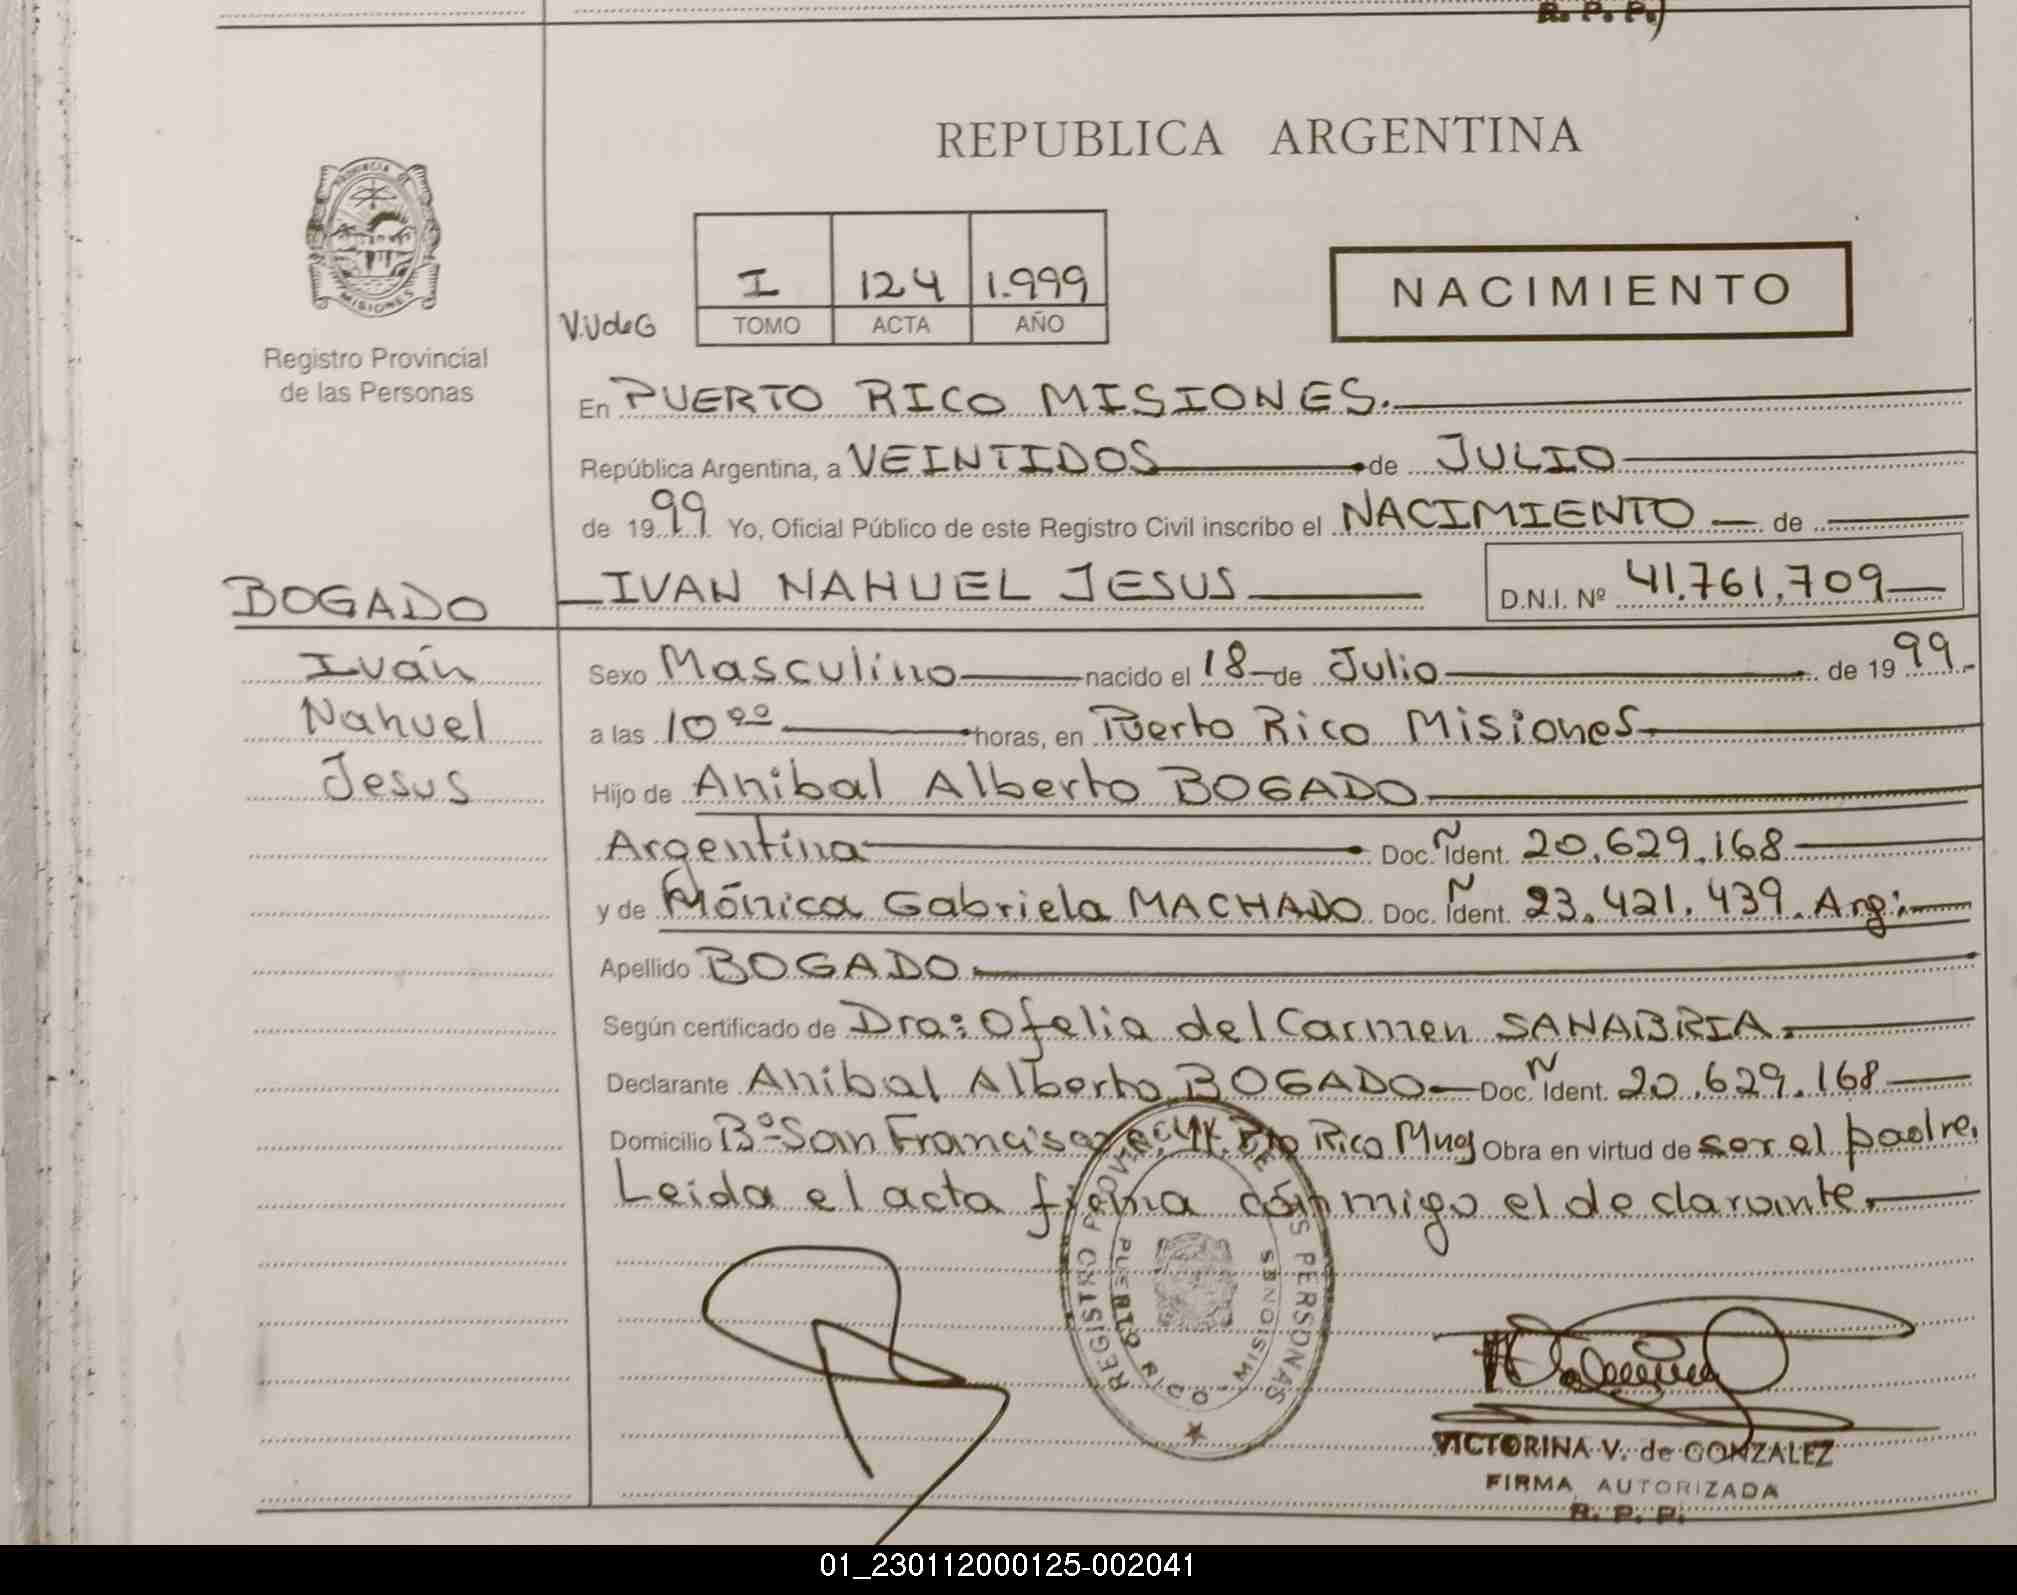 R. P. P.
REPUBLICA ARGENTINA
PROVINCIA DE
MISIONES
Registro Provincial
de las Personas
V.V de G
I 124 1.999
TOMO ACTA AÑO
NACIMIENTO
En PUERTO RICO MISIONES.
República Argentina, a VEINTIDOS de JULIO
de 1999 Yo, Oficial Público de este Registro Civil inscribo el NACIMIENTO de
IVAN NAHUEL JESUS D.N.I. Nº 41.761.709
BOGADO
Iván
Nahuel
Jesus
Sexo Masculino nacido el 18 de Julio de 1999.-
a las 10 00 horas, en Puerto Rico Misiones
Hijo de Anibal Alberto BOGADO
Argentina Doc. Ident. 20.629.168
y de Mónica Gabriela MACHADO Doc. Ident. 23.421.439. Arg:
Apellido BOGADO
Según certificado de Dra: Ofelia del Carmen SANABRIA.
Declarante Anibal Alberto BOGADO Doc. Ident. 20.629.168
Domicilio Bº San Francisco Pto Rico Mnes Obra en virtud de ser el padre.
Leida el acta firma conmigo el declarante.
REGISTRO PROVINCIAL DE LAS PERSONAS
PUERTO RICO - MISIONES
VICTORINA V. de GONZALEZ
FIRMA AUTORIZADA
R. P. P.
01_230112000125-002041